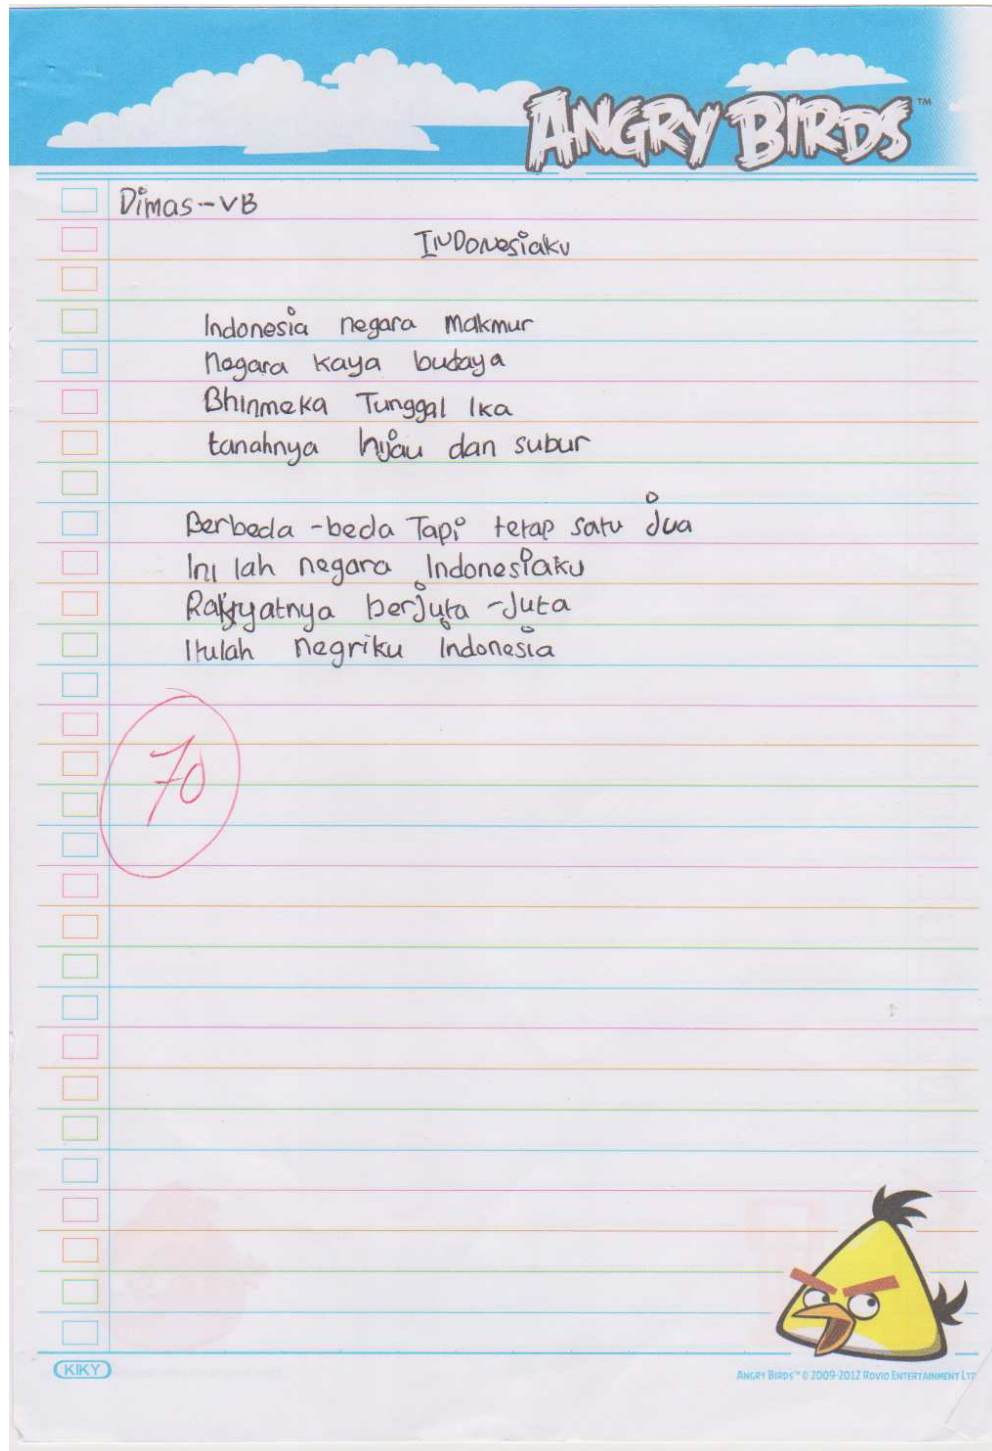 ANGRY BIRDS™
Dimas--VB
INDONesiaku
Indonesia negara makmur
Nagara kaya budaya
Bhinmeka Tunggal Ika
tanahnya hijau dan subur
Berbeda -beda Tapi tetap satu Jua
Ini lah negara Indonesiaku
Rakyatnya berjuta -Juta
Itulah negriku Indonesia
70
KIKY
ANGRY BIRDS™ © 2009-2012 ROVIO ENTERTAINMENT LT